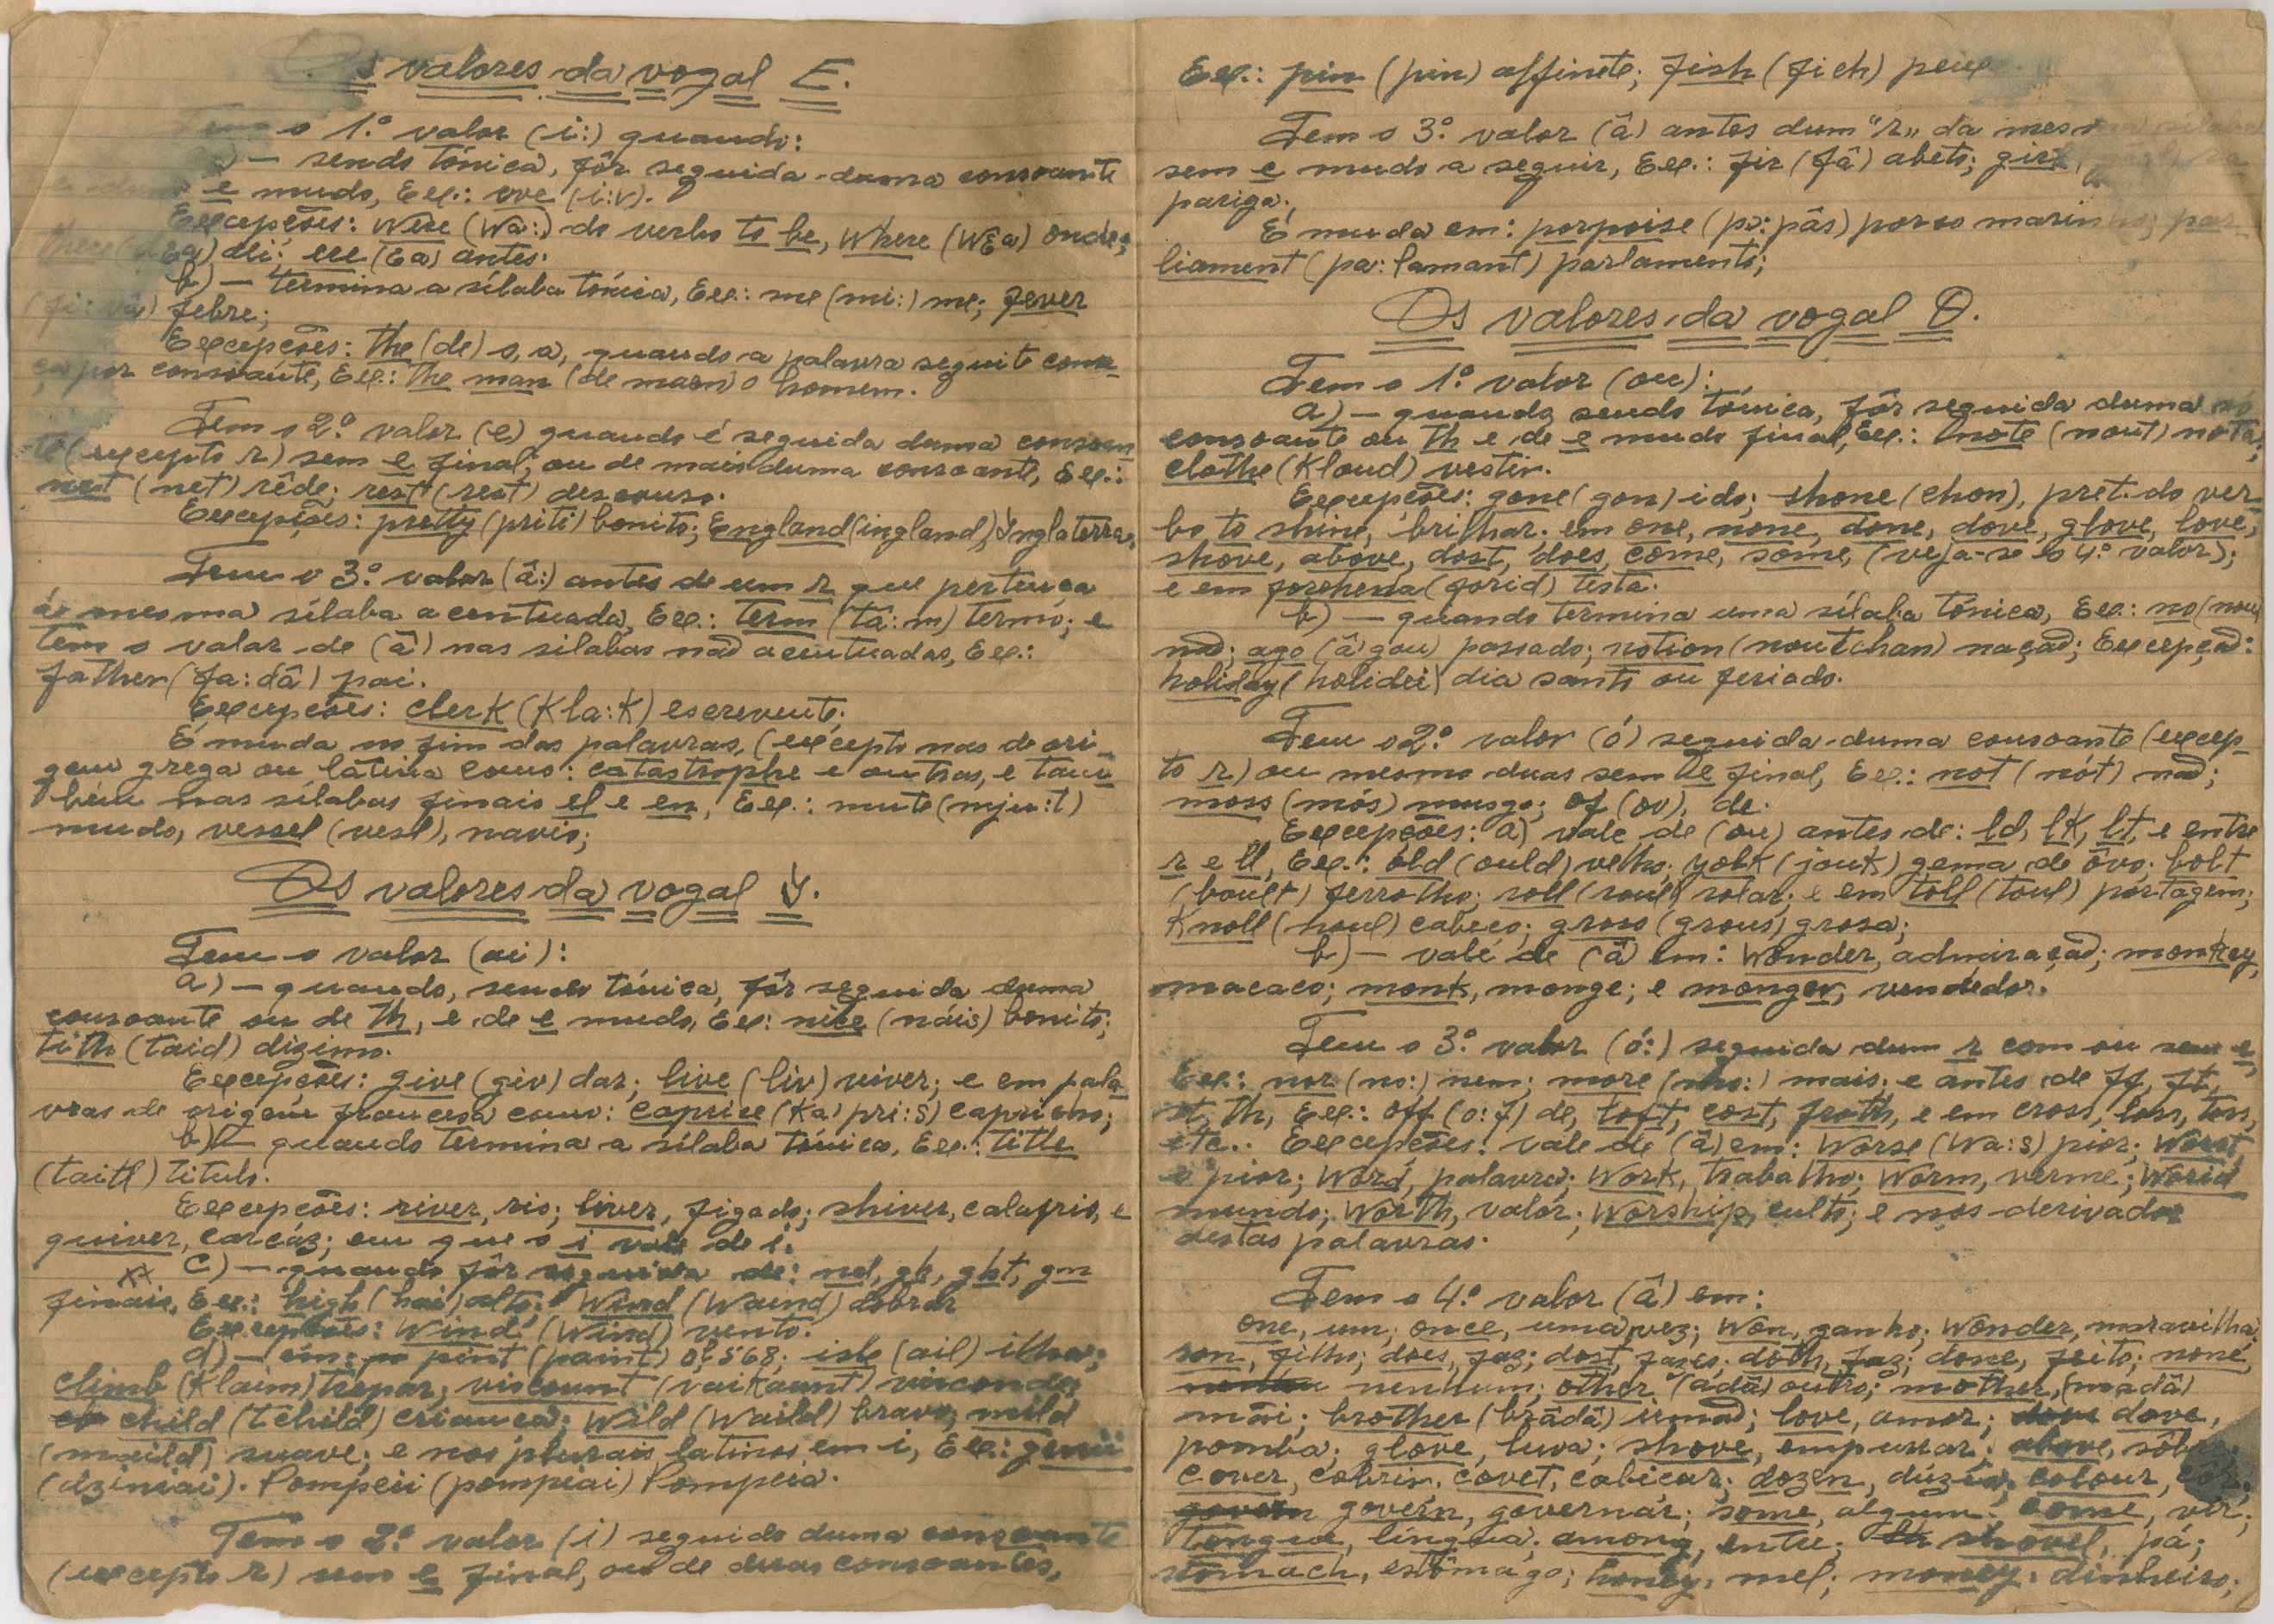 Os valores da vogal E.
Tem o 1.º valor (i:) quando:
a) — sendo tónica, fôr seguida duma consoante
e e mudo, Ex.: eve (i:v).
Excepções: were (wâ:) do verbo to be, where (wEa) onde;
there (dEa) ali; ere (Ea) antes.
b) — termina a sílaba tónica, Ex.: me (mi:) me; fever
(fi:vâ) febre;
Excepções: the (de) o, a, quando a palavra seguite come-
ça por consoante, Ex.: the man (de maen) o homem.
Tem o 2.º valor (e) quando é seguida duma consoan
te (excepto r) sem e final; ou de mais duma consoante, Ex.:
net (net) rêde; rest (rest) descanso.
Excepções: pretty (priti) bonito; England (ingland), Inglaterra.
Tem o 3.º valor (â:) antes de um r que pertença
à mesma sílaba acentuada, Ex.: term (tâ:m) termo; e
tem o valor de (â) nas silabas não acentuadas, Ex.:
father (fa:dâ) pai.
Excepções: clerk (Kla:K) escrevente.
É muda no fim das palavras, (excepto nas de ori-
gem grega ou latina como: catastrophe e outras, e tam
bém nas sílabas finais el e en, Ex.: mute (mju:t)
mudo, vessel (vesl), navio;
Os valores da vogal I.
Tem o valor (ai):
a) — quando, sendo tónica, fôr seguida duma
consoante ou de th, e de e mudo, Ex: nice (náis) bonito;
tith (taid) dízimo.
Excepções: give (giv) dar; live (liv) viver; e em pala
vras de origem francesa como: caprice (Ka pri:s) capricho;
b) — quando termina a sílaba tónica, Ex.: title
(taitl) titulo.
Excepções: river, rio; liver, figado; shiver, calafrio, e
quiver, carcáz; em que o i vale de i.
c) — quando fôr seguida de: nd, gh, ght, gn
finais, Ex.: high (hai) alto; wind (waind) dobrar
Excepções: wind (wind) vento.
d) — em: pint (paint) 0,l568; isle (ail) ilha;
climb (Klaim) trepar; viscount (vaiKaunt) visconde;
child (tchild) criança; wild (waild) bravo; mild
(maild) suave; e nos plurais latinos em i, Ex.: genii
(dziniai). Pompeii (pompiai) Pompeia.
Tem o 2.º valor (i) seguido duma consoante
(excepto r) sem e final, ou de duas consoantes,
Ex.: pin (pin) alfinete; fish (fich) peixe
Tem o 3.º valor (â) antes dum "r" da mesma sílaba
sem e mudo a seguir, Ex.: fir (fâ) abeto; girl,
pariga.
É muda em: porpoise (pɔ:pâs) porco marinho; par-
liament (pa:lamant) parlamento;
Os valores da vogal O.
Tem o 1.º valor (ou):
a) — quando sendo tónica, fôr seguida duma só
consoante ou th e de e mudo final, Ex.: note (nout) nota;
clothe (Kloud) vestir.
Excepções: gone (gon) ido; shone (chon), pret. do ver-
bo to shine, brilhar; em one, none, done, dove, glove, love,
shove, above, dost, does, come, some, (veja-se o 4.º valor);
e em forehena (forid) testa.
b) — quando termina uma sílaba tónica, Ex.: no (nou)
não; ago (â gou) passado; notion (noutchan) noção; Excepção:
holiday (holidei) dia santo ou feriado.
Tem o 2.º valor (ó) seguida duma consoante (excep-
to r) ou mesmo duas sem e final, Ex.: not (nót) não;
moss (mós) musgo; of (ov), de.
Excepções: a) vale de (ou) antes de: ld, lk, lt, e entre
r e ll, Ex.: old (ould) velho; yolk (jouk) gema de ôvo; bolt
(boult) ferrolho; roll (roul) rolar; e em toll (toul) portagem;
Knoll (noul) cabeço; gross (grous) grosa;
b) — vale de (â) em: wonder, admiração; monkey,
macaco; monk, monge; e monger, vendedor.
Tem o 3.º valor (ó:) seguida dum r com ou sem e,
Ex.: nor (no:) nem; more (mo:) mais; e antes de ff, ft,
st, th, Ex.: off (o:f) de, loft, cost, froth, e em cross, loss, toss,
etc.. Excepções: vale de (â) em: worse (wa:s) pior; worst
o pior; word, palavra; work, trabalho; worm, verme; world
mundo; worth, valor; worship, culto; e nos derivados
destas palavras.
Tem o 4.º valor (â) em:
one, um; once, uma vez; won, ganho; wonder, maravilha;
son, filho; does, faz; dost, fazes; doth, faz; done, feito; none,
nenhum; other (adâ) outro; mother, (madâ)
mãi; brother (brâdâ) irmão; love, amor; dove,
pomba; glove, luva; shove, empurrar; above, sôbre;
cover, cobrir; covet, cobiçar; dozen, dúzia; colour, côr;
govern, governar; some, algum; come, vir;
tongue, língua; among, entre; shovel, pá;
stomach, estômago; honey, mel; money, dinheiro;